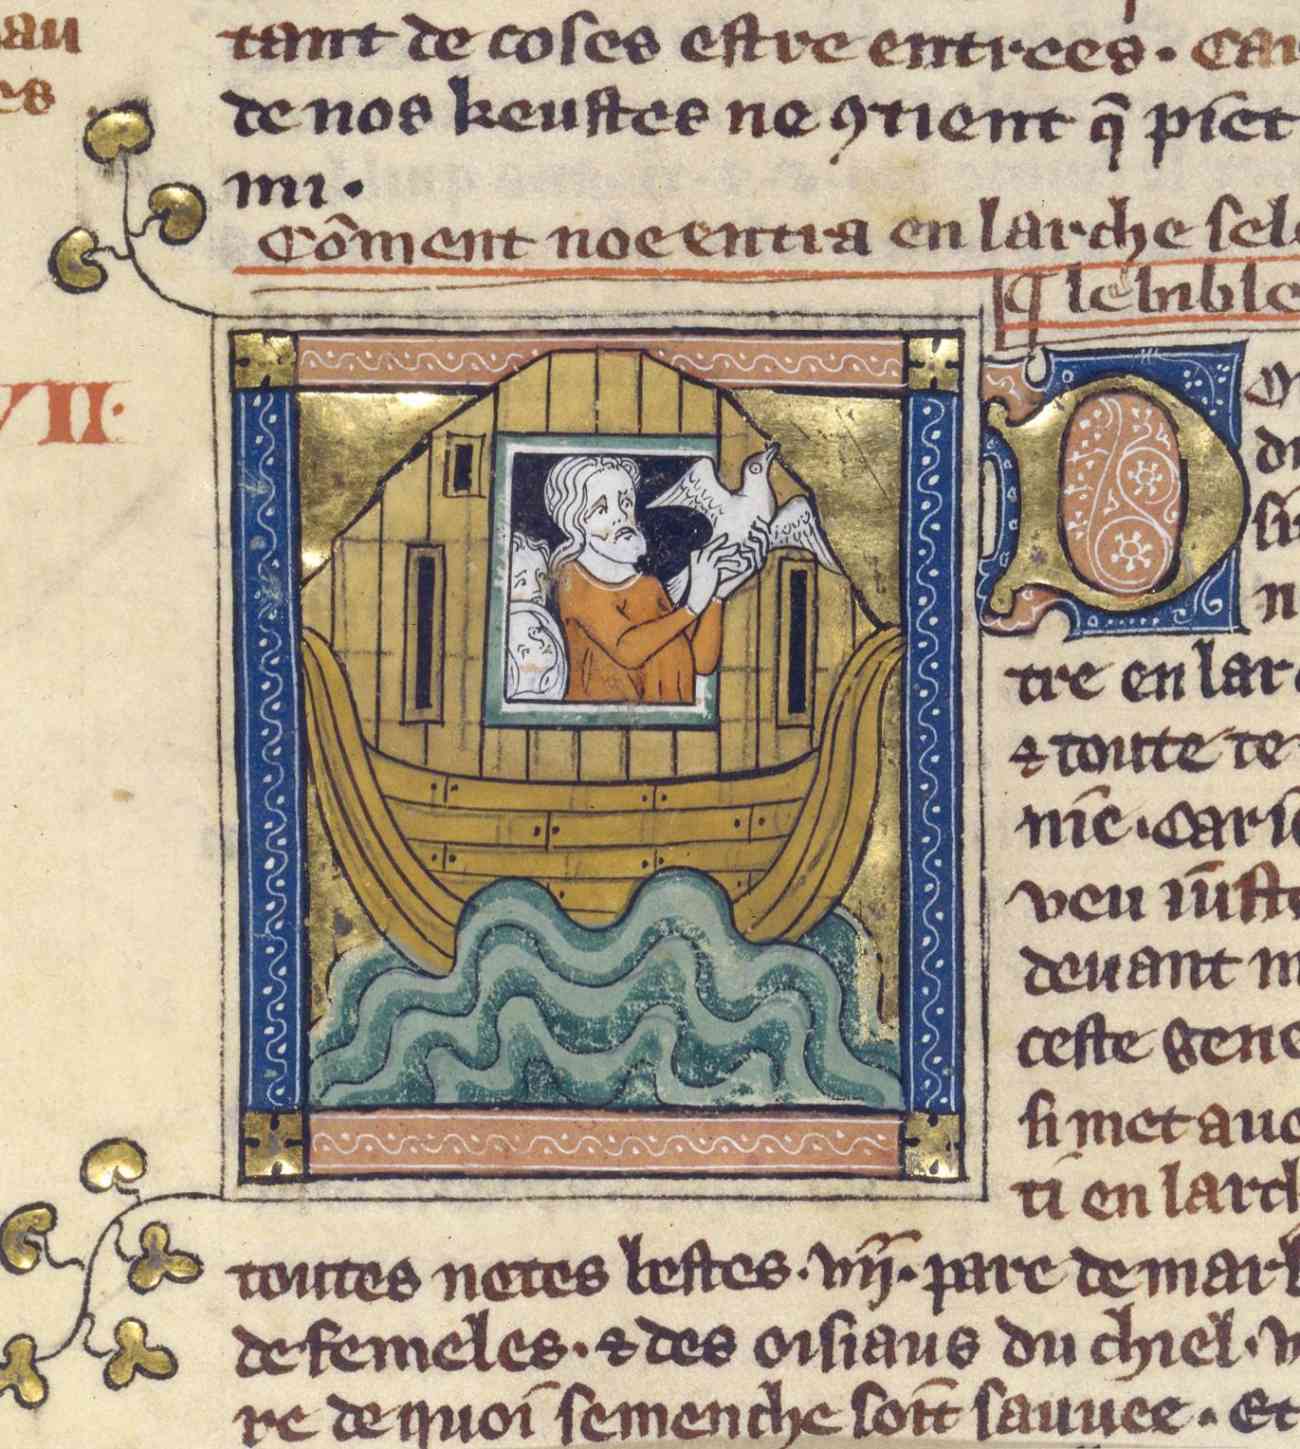 au
es
tant de coses estre entrees. Car
de nos keustes ne ꝯtient q̃ piet
mi.
Cõment noe entra en larche sel
¶ le bible
VII.
D
di
n
tre en lar
⁊ toute te
nie. Car ie
veu iuste
deuant m
ceste gene
si met auc
ti en larch
toutes netes bestes. vij. pare de marl
de femeles. ⁊ des oisiaus du chiel. v
re de quoi semenche soit sauuee. Et